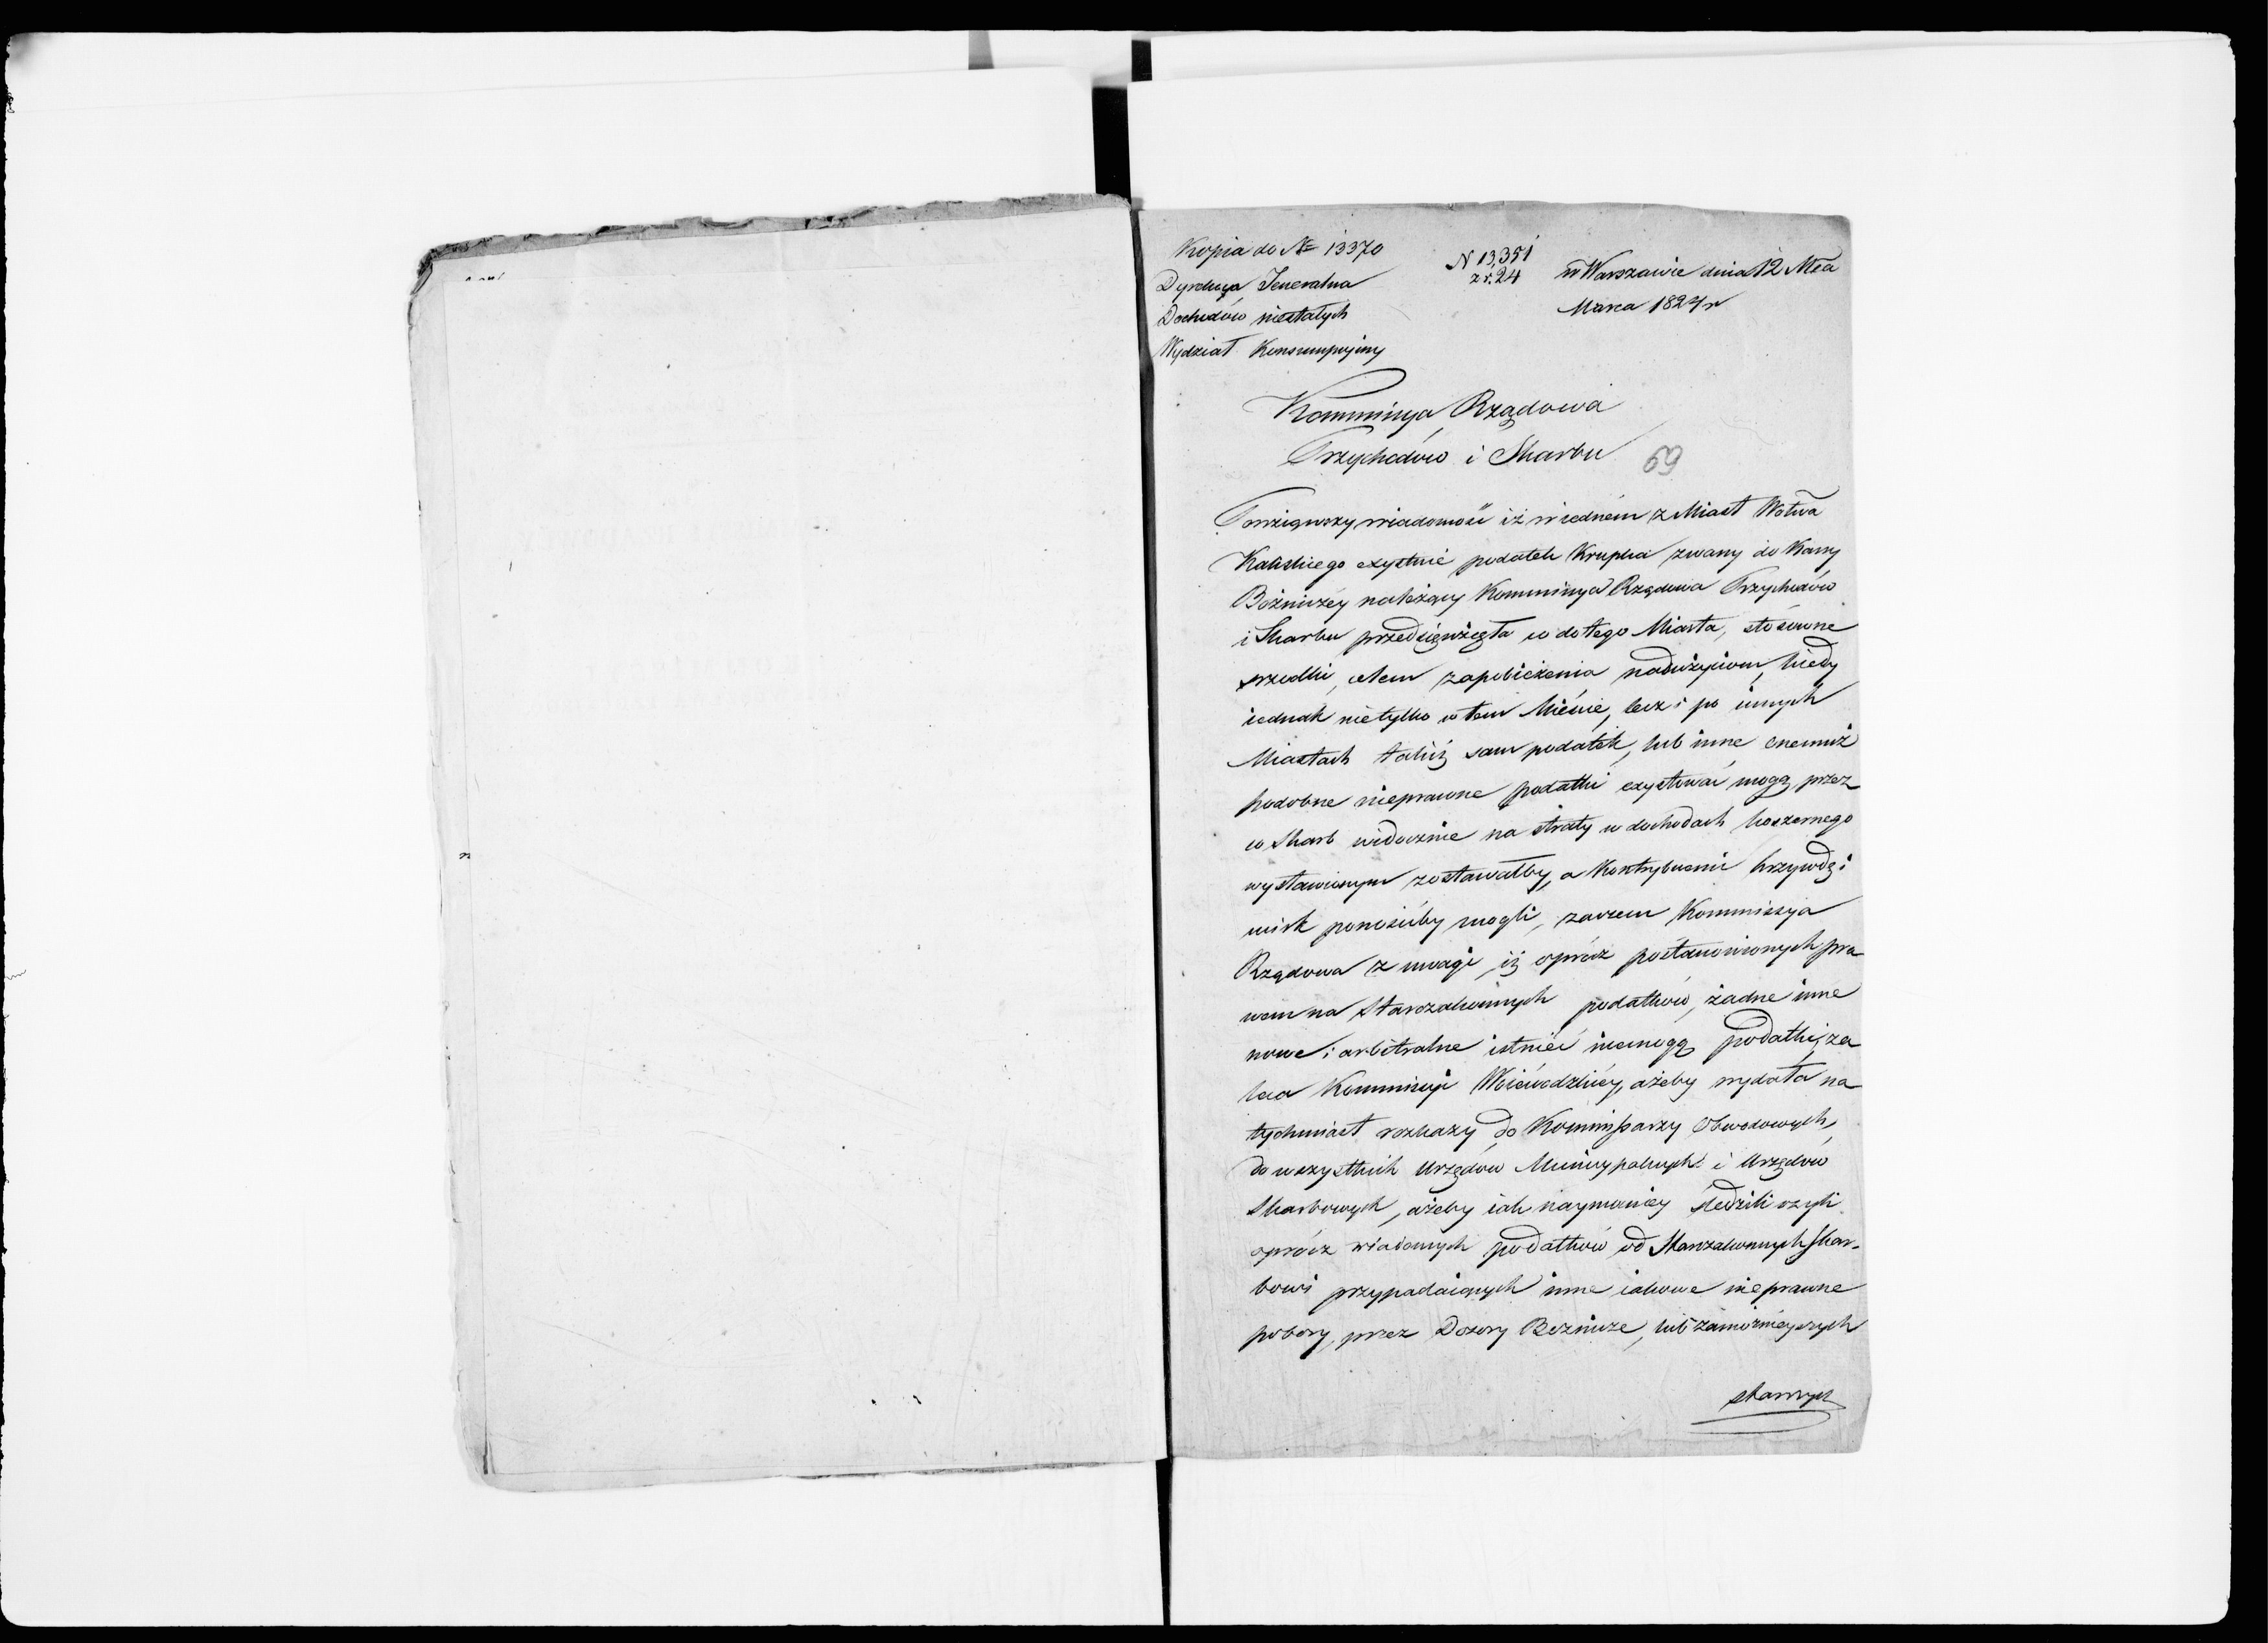 Kopia do № 13370
N 13,351
z r. 24
w Warszawie dnia 12 Mca
Marca 1824 r
Dyrekcya Jeneralna
Dochodów niestałych
Wydział Konsumpcyiny
Kommissya Rządowa
Przychodów i Skarbu
69
Powziąwszy wiadomość iż w iednem z Miast Wotwa
Kaliskiego exystuie podatek Krupka zwany do Kassy
Bóżniczéy należący Kommissya Rządowa Przychodów
i Skarbu przedsięwzięła co do tego Miasta, stósowne
srzodki, celem zapobieżenia nadużyciom, kiedy
iednak nietylko w tem Mieście, lecz i po innych
Miastach takiż sam podatek, lub inne onemuż
podobne nieprawne podatki exystować mogą, przez
co Skarb widocznie na straty w dochodach koszernego
wystawionym zostawałby, a Kontrybuenci krzywdę i
ucisk ponosićby mogli, zaczem Kommissya
Rządowa z uwagi, iż oprócz postanowionych pra
wem na Starozakonnych podatków, żadne inne
nowe i arbitralne istnieć niemogą podatki, za
leca Kommissyi Woiewódzkiéy, ażeby wydała na
tychmiast rozkazy do Kommissarzy Obwodowych,
do wszystkich Urzędów Municypalnych i Urzędów
Skarbowych, ażeby iak naymocniéy śledzili czyli
oprócz wiadomych podatków od Starozakonnych Skar-
bowi przypadaiących inne iakowe nieprawne
pobory, przez Dozory Bóżnicze, lub zamożnieyszych